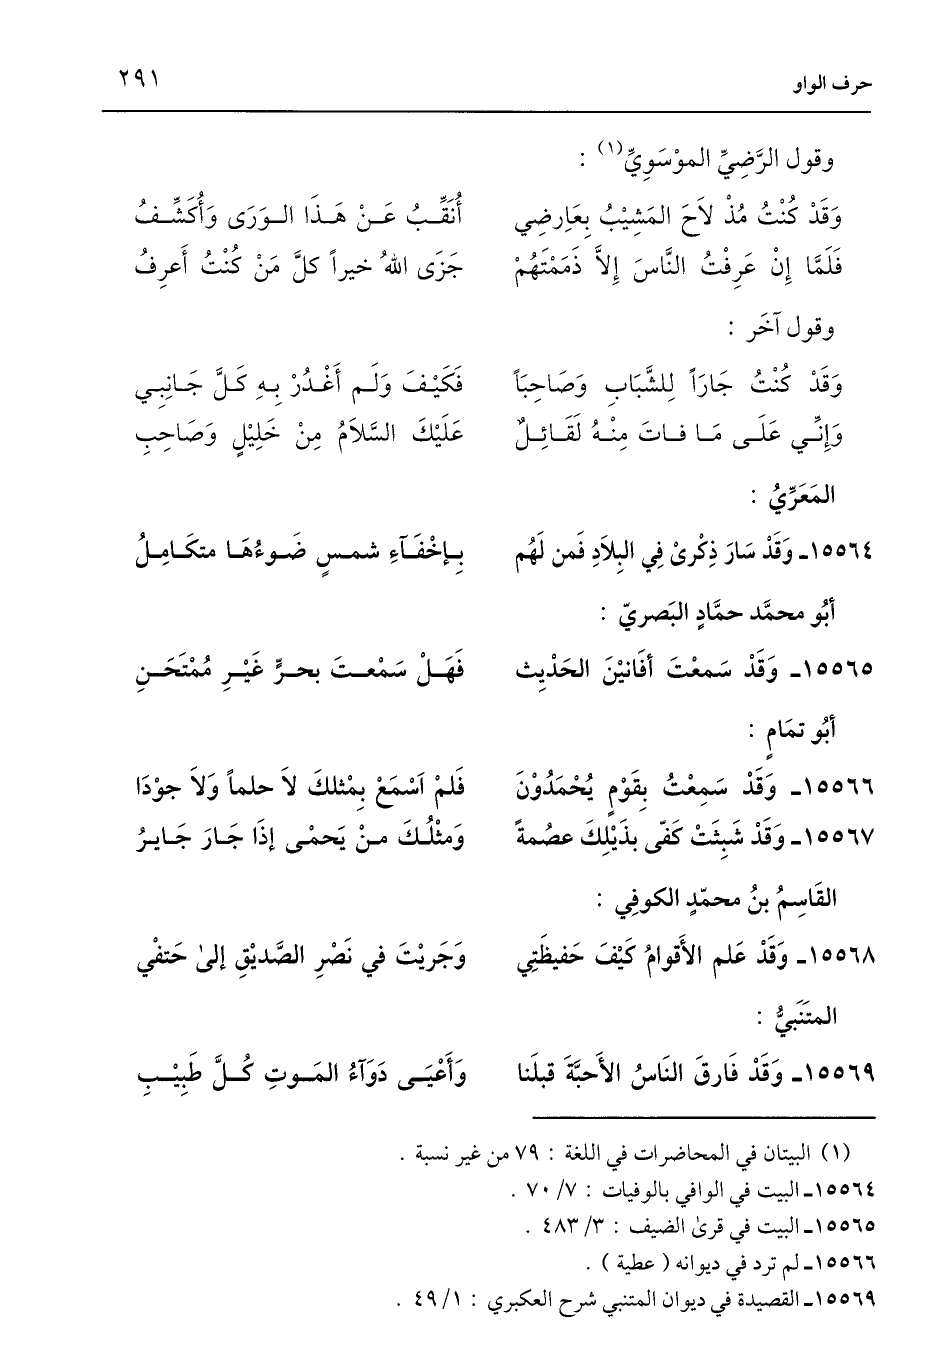 حرف الواو ٢٩١
وقول الرَّضِيِّ الموْسَوِيِّ(١) :
وَقَدْ كُنْتُ مُذْ لاَحَ المَشِيْبُ بِعَارِضِي أُنَقِّبُ عَنْ هَذَا الوَرَى وَأُكَشِّفُ
فَلَمَّا إِنْ عَرِفْتُ النَّاسَ إِلاَّ ذَمَمْتَهُمْ جَزَى اللهُ خيراً كلَّ مَنْ كُنْتُ أَعرِفُ
وقول آخَر :
وَقَدْ كُنْتُ جَارَاً لِلشَّبَابِ وَصَاحِبَاً فَكَيْفَ وَلَم أَغْدُرْ بِهِ كَلَّ جَانِبي
وَإِنِّي عَلَى مَا فاتَ مِنْهُ لَقَائِلٌ عَلَيْكَ السَّلاَمُ مِنْ خَلِيْلٍ وَصَاحِبِ
المَعَرِّيُ :
١٥٥٦٤ـ وَقَدْ سَارَ ذِكْرِىْ فِي البِلاَدِ فَمن لَهُم بِإخْفَآءِ شمسٍ ضَوءُهَا متكَامِلُ
أبُو محمَّد حمَّادٍ البَصريّ :
١٥٥٦٥ـ وَقَدْ سَمعْتَ أفَانيْنَ الحَدْيِث فَهَلْ سَمْعتَ بحرٍّ غَيْرِ مُمْتَحَنِ
أبُو تمَامٍ :
١٥٥٦٦ـ وَقَدْ سَمِعْتُ بِقَوْمٍ يُحْمَدُوْنَ فَلمْ اَسْمَعْ بِمْثلكَ لاَ حلماً وَلاَ جوْدَا
١٥٥٦٧ـ وَقَدْ شَبِثَتْ كَفّى بذَيْلِكَ عصْمةً وَمثْلُكَ منْ يَحمْى إِذَا جَارَ جَايرُ
القَاسِمُ بنُ محمّدٍ الكوفِي :
١٥٥٦٨ـ وَقَدْ عَلم الأَقوامُ كَيْفَ حَفيظَتِي وَجَريْتَ في نَصْرِ الصَّديْقِ إلىٰ حَتفْي
المتَنَبيُّ :
١٥٥٦٩ـ وَقَدْ فَارقَ النَاسُ الأَحبَّةَ قبلَنا وَأَعْيَى دَوَآءُ المَوتِ كُلَّ طَبِيْبِ
(١) البيتان في المحاضرات في اللغة : ٧٩ من غير نسبة .
١٥٥٦٤ـ البيت في الوافي بالوفيات : ٧/ ٧٠ .
١٥٥٦٥ـ البيت في قرىٰ الضيف : ٣/ ٤٨٣ .
١٥٥٦٦ـ لم ترد في ديوانه ( عطية ) .
١٥٥٦٩ـ القصيدة في ديوان المتنبي شرح العكبري : ١/ ٤٩ .